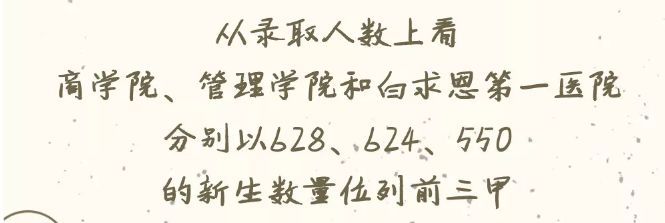 从录取人数上看
商学院、管理学院和白求恩第一医院
分别以628、624、550
的新生数量位列前三甲